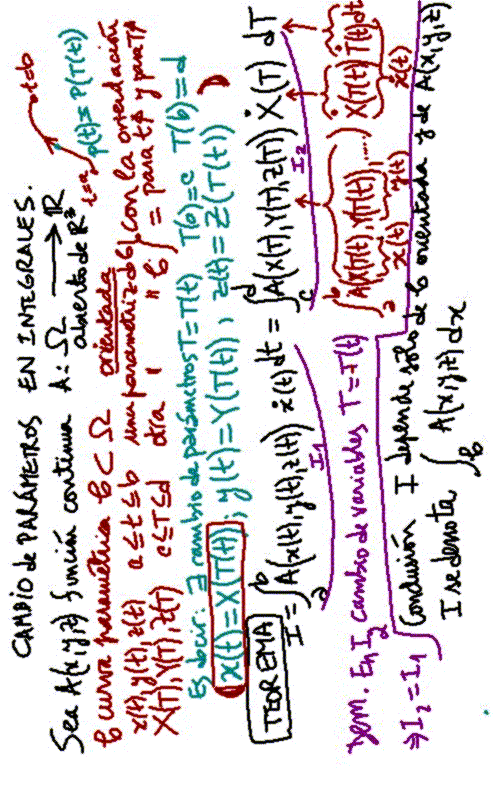 CAMBIO de PARÁMETROS EN INTEGRALES.
Sea A(x,y,z) función continua A: Ω → ℝ
abierto de ℝ³
t=a t=b p(t)=P(T(t))
C curva paramétrica C ⊂ Ω orientada
x(t), y(t), z(t) a≤t≤b una parametriz de C, con la orientación
X(T), Y(T), Z(T) c≤T≤d otra " " C, = para t↑ y para T↑
Es decir: ∃ cambio de parámetros T=T(t) T(a)=c T(b)=d
x(t)=X(T(t)); y(t)=Y(T(t)); z(t)=Z(T(t))
TEOREMA I = ∫_a^b A(x(t),y(t),z(t)) ẋ(t) dt = ∫_c^d A(X(T),Y(T),Z(T)) Ẋ(T) dT
I₁ I₂
Dem. En I₂ cambio de variables T=T(t) ∫_a^b A(X(T(t)),Y(T(t)),....) Ẋ(T(t)) Ṫ(t) dt
x(t) y(t) ẋ(t)
⇒ I₂ = I₁
Conclusión I depende sólo de C orientada y de A(x,y,z)
I se denota ∫_C A(x,y,z) dx